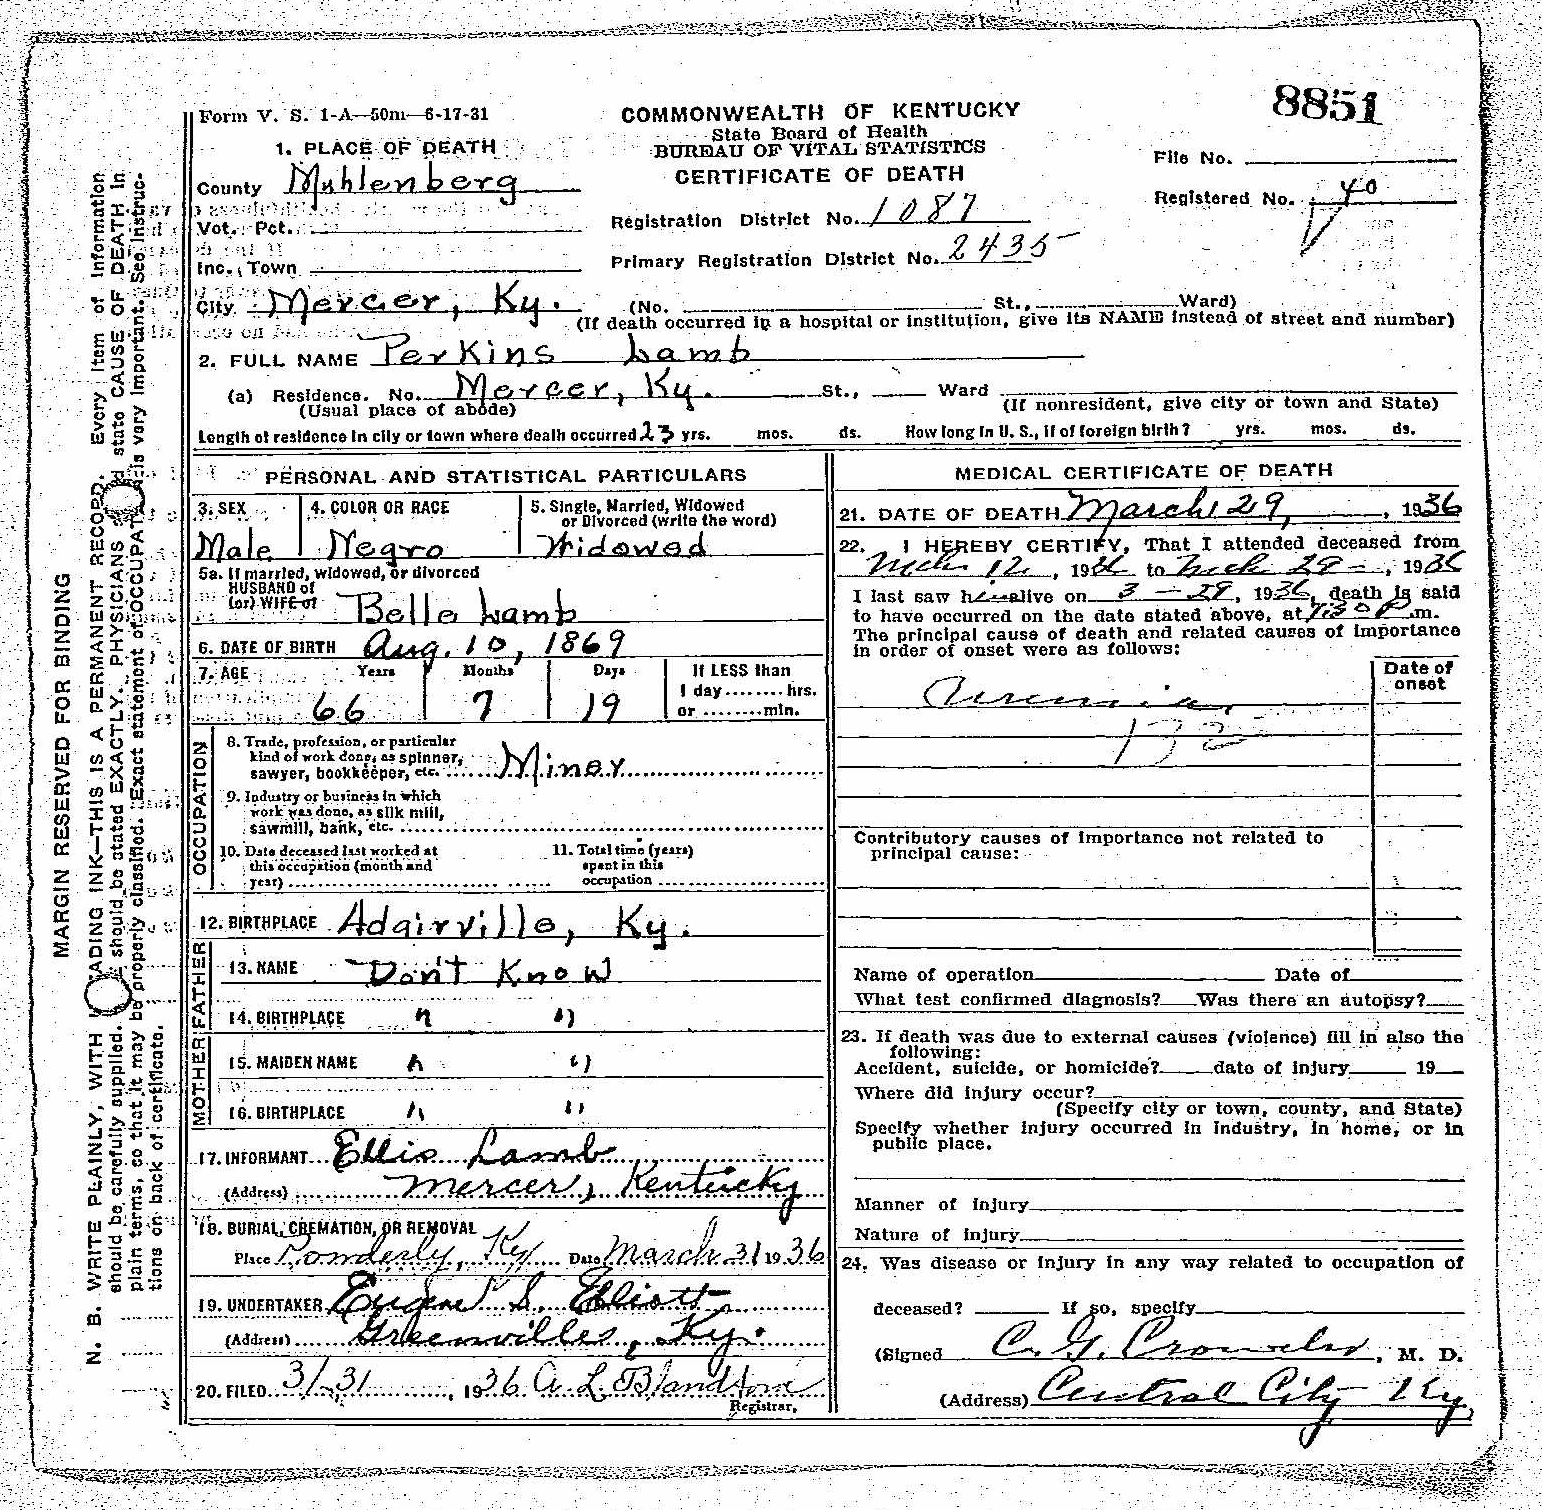 8851
Form V. S. 1-A—50m—6-17-31
COMMONWEALTH OF KENTUCKY
State Board of Health
BUREAU OF VITAL STATISTICS
CERTIFICATE OF DEATH
File No.
Registered No. 40
Registration District No. 1087
Primary Registration District No. 2435
1. PLACE OF DEATH
County Muhlenberg
Vot. Pct.
Inc. Town
City Mercer, Ky. (No. St., Ward)
(If death occurred in a hospital or institution, give its NAME instead of street and number)
2. FULL NAME Perkins Lamb
(a) Residence. No. Mercer, Ky. St., Ward
(Usual place of abode) (If nonresident, give city or town and State)
Length of residence in city or town where death occurred 23 yrs. mos. ds. How long in U. S., if of foreign birth? yrs. mos. ds.
PERSONAL AND STATISTICAL PARTICULARS
3. SEX
Male
4. COLOR OR RACE
Negro
5. Single, Married, Widowed
or Divorced (write the word)
Widowed
5a. If married, widowed, or divorced
HUSBAND of
(or) WIFE of Belle Lamb
6. DATE OF BIRTH Aug. 10, 1869
7. AGE Years Months Days If LESS than
1 day........hrs.
or ........min.
66 7 19
OCCUPATION
8. Trade, profession, or particular
kind of work done, as spinner,
sawyer, bookkeeper, etc. Miner
9. Industry or business in which
work was done, as silk mill,
sawmill, bank, etc.
10. Date deceased last worked at
this occupation (month and
year)
11. Total time (years)
spent in this
occupation
12. BIRTHPLACE Adairville, Ky.
FATHER
13. NAME Don't Know
14. BIRTHPLACE " "
MOTHER
15. MAIDEN NAME " "
16. BIRTHPLACE " "
17. INFORMANT Ellis Lamb
(Address) Mercer, Kentucky
18. BURIAL, CREMATION, OR REMOVAL
Place Powderly, Ky. Date March 31 1936
19. UNDERTAKER Eugene S. Elliott
(Address) Greenville, Ky.
20. FILED 3/31, 1936 A. L. Blandford
Registrar.
MEDICAL CERTIFICATE OF DEATH
21. DATE OF DEATH March 29, , 1936
22. I HEREBY CERTIFY, That I attended deceased from
Mch 12, 1936 to Mch 29, 1936
I last saw him alive on 3 - 29, 1936, death is said
to have occurred on the date stated above, at 7:30 P.m.
The principal cause of death and related causes of importance
in order of onset were as follows:
Date of
onset
Uremia
Contributory causes of importance not related to
principal cause:
Name of operation Date of
What test confirmed diagnosis? Was there an autopsy?
23. If death was due to external causes (violence) fill in also the
following:
Accident, suicide, or homicide? date of injury 19
Where did injury occur?
(Specify city or town, county, and State)
Specify whether injury occurred in industry, in home, or in
public place.
Manner of injury
Nature of injury
24. Was disease or injury in any way related to occupation of
deceased? If so, specify
(Signed C. G. , M. D.
(Address) Central City Ky.
MARGIN RESERVED FOR BINDING
N. B. WRITE PLAINLY, WITH ADING INK—THIS IS A PERMANENT RECORD. Every item of information
should be carefully supplied. should be stated EXACTLY. PHYSICIANS state CAUSE OF DEATH in
plain terms, so that it may be properly classified. Exact statement of OCCUPAT is very important. See instruc-
tions on back of certificate.